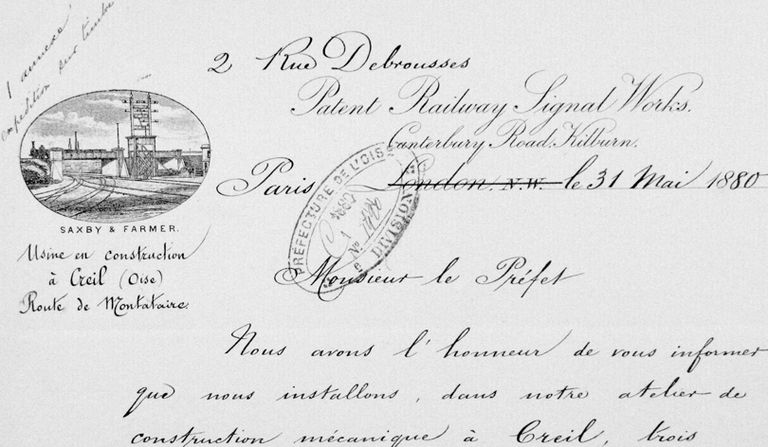 1 annexe
2 Rue Debrousses
Patent Railway Signal Works.
Canterbury Road, Kilburn.
Paris London N.W. le 31 Mai 1880
PRÉFECTURE DE L'OISE
Nº
DIVISION
SAXBY & FARMER.
Usine en construction
à Creil (Oise)
Route de Montataire.
Monsieur le Préfet
Nous avons l'honneur de vous informer
que nous installons, dans notre atelier de
construction mécanique à Creil, trois